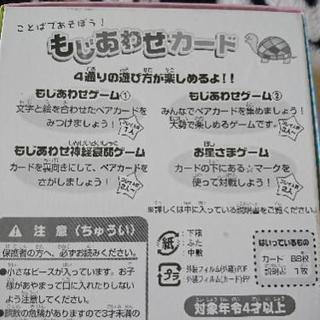 ことばであそぼう!
もじあわせカード
4通りの遊び方が楽しめるよ!!
もじあわせゲーム①
文字と絵を合わせたペアカードを
みつけましょう!
もじあわせゲーム②
みんなでペアカードを集めましょう!
大勢で楽しめるゲームです。
もじあわせ神経衰弱ゲーム
カードを裏向きにして、ペアを
さがしましょう!
お星さまゲーム
カードの下にある☆マークを
使って対戦しよう!
※詳しくは中に入っている説明書をご覧ください。
注意(ちゅうい)
保護者の方へ、必ずお読みください。
●小さなピースが入っています。お子
様があやまって口に入れたりしない
よう注意してください。
●誤飲の危険がありますので3才未満の
紙:
下箱
ふた
中敷
プラ
はいっているもの
説明書 1枚
対象年令4才以上